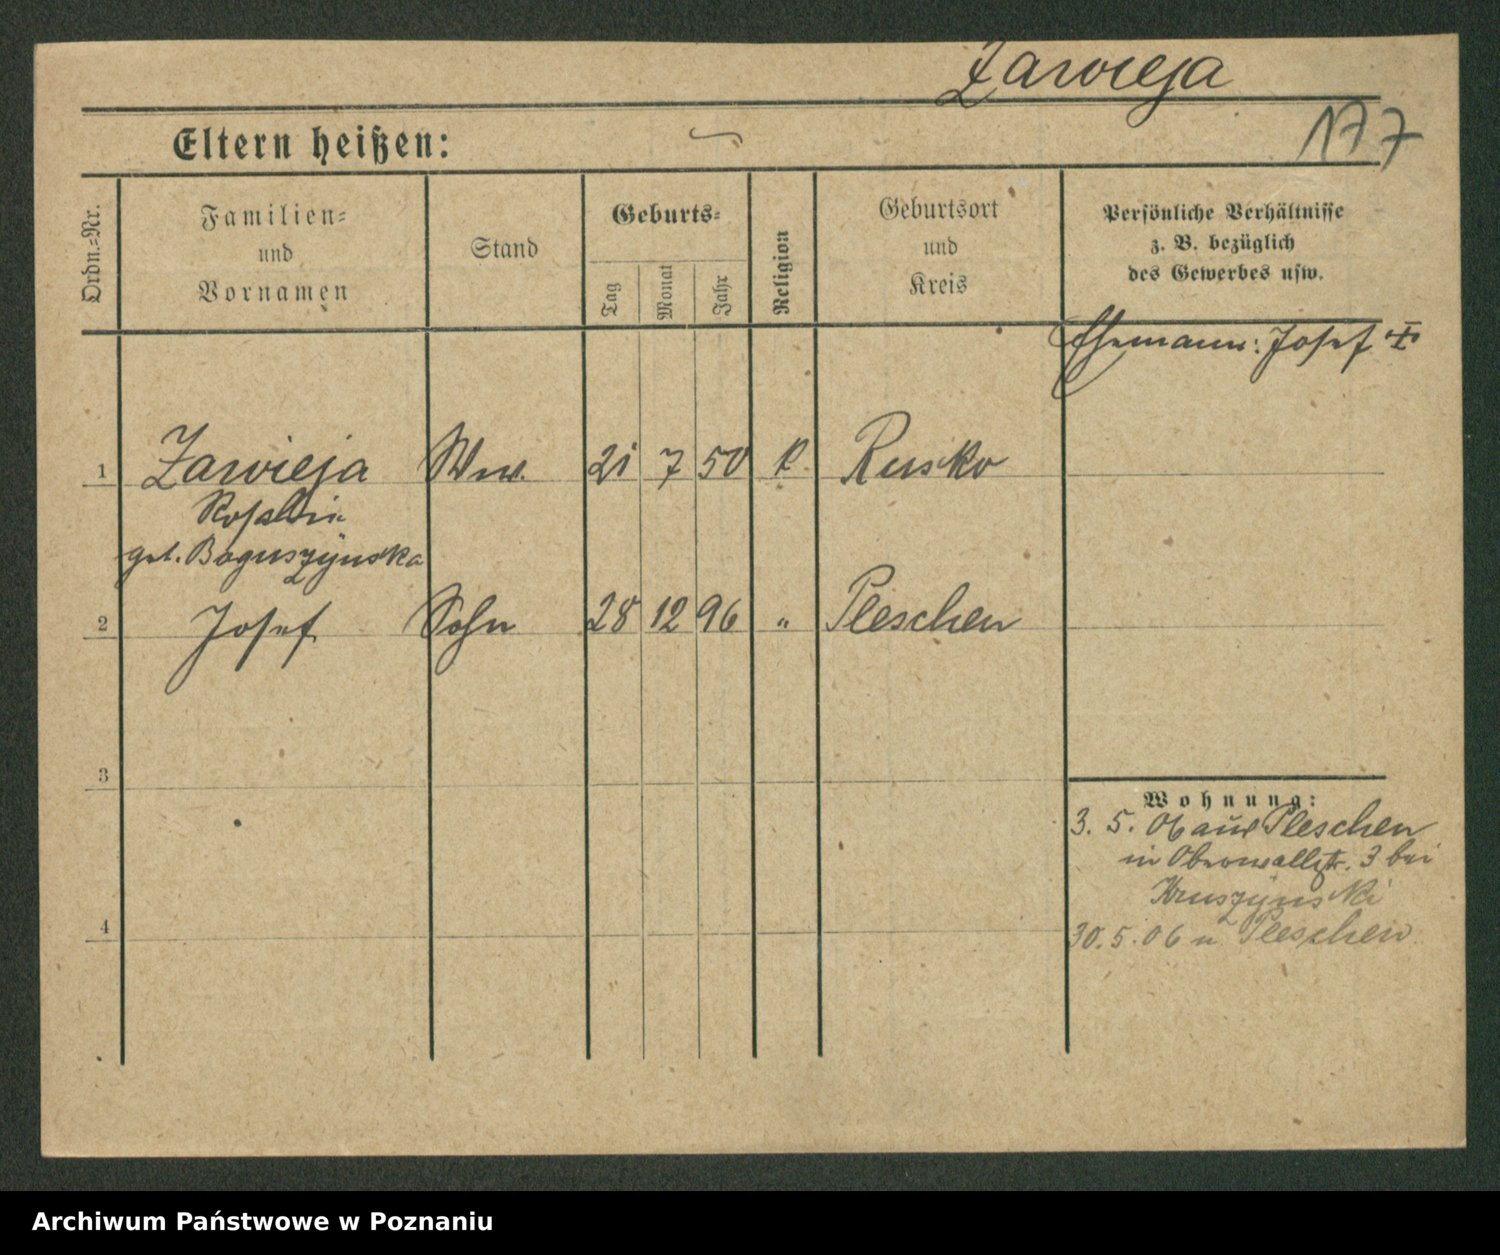 Zawieja
177
Eltern heißen:
Ordn.=Nr.
Familien=
und
Vornamen
Stand
Geburts=
Tag
Monat
Jahr
Religion
Geburtsort
und
Kreis
Persönliche Verhältnisse
z. B. bezüglich
des Gewerbes usw.
Ehemann: Josef
1 Zawieja Ww. 21 7 50 k Rusko
geb. Boguszynska
2 Josef Sohn 28 12 96 " Pleschen
3
4
Wohnung:
3. 5. 06 aus Pleschen
in Oberwallstr. 3 bei
Kruszynski
30. 5. 06 n. Pleschen
Archiwum Państwowe w Poznaniu